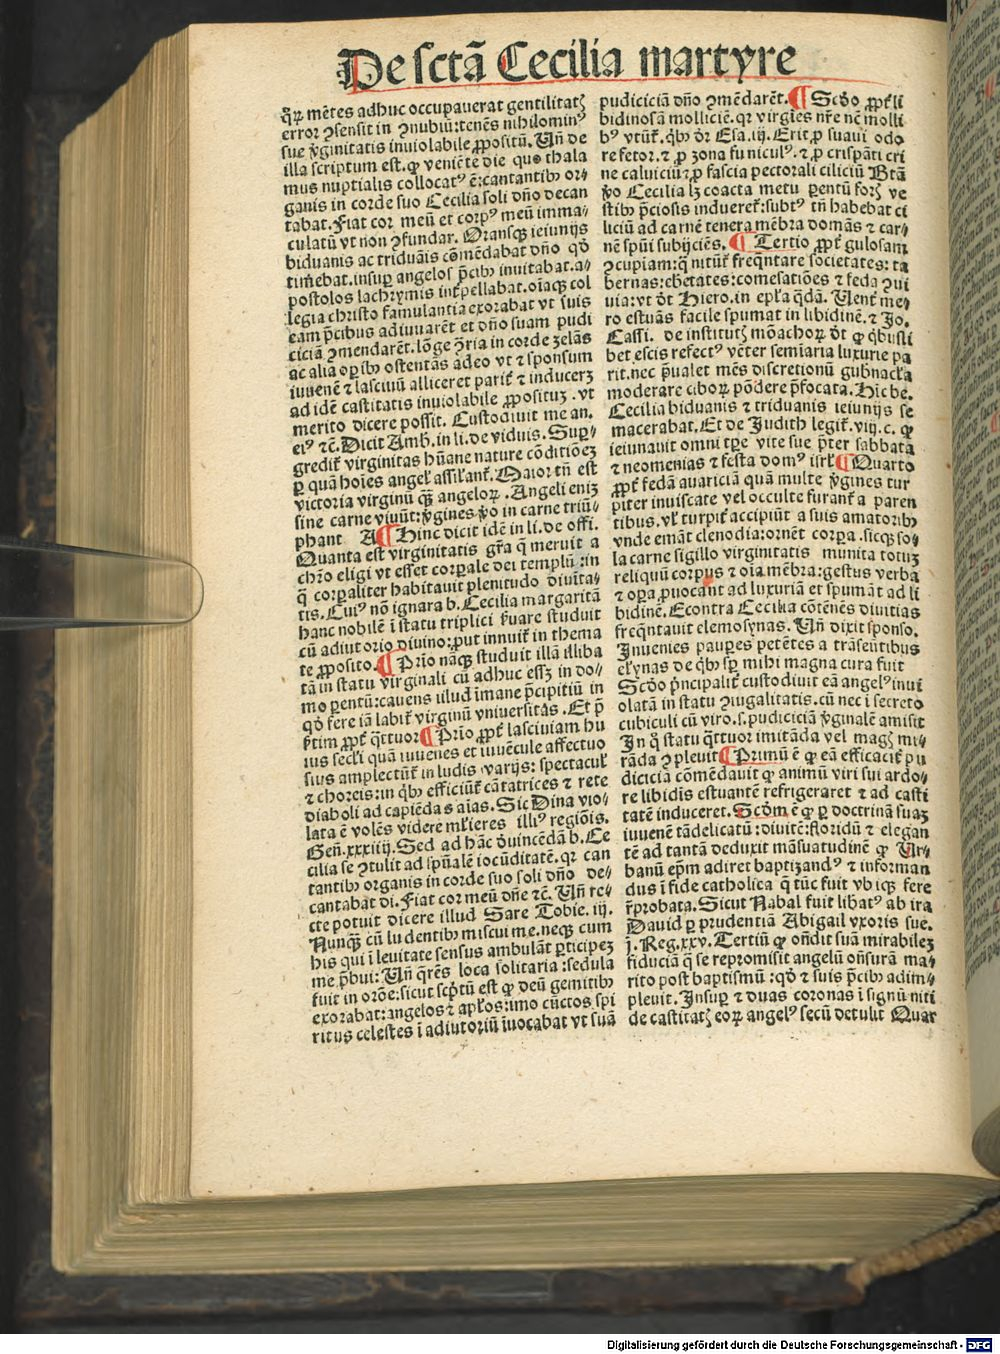 De sctã Cecilia martyre
q̃ꝝ mẽtes adhuc occupauerat gentilitatꝭ
error ꝯsensit in ꝯnubiũ: tenẽs nihilominꝰ
sue v̾ginitatis inuiolabile ꝓpositũ. Uñ de
illa scriptum est. ꝙ veniẽte die quo thala
mus nuptialis collocatꝰ ẽ: cantantibꝰ or⸗
ganis in corde suo Cecilia soli dño decan
tabat. Fiat cor meũ et corpꝰ meũ imma⸗
culatũ vt non ꝯfundar. Oransqꝫ ieiunijs
biduanis ac triduãis cõmẽdabat dño qḋ
timebat. insuꝑ angelos p̃cibꝰ inuitabat. a⸗
postolos lachrymis int̾pellabat. oĩaqꝫ col
legia christo famulantia exorabat vt suis
eam p̃cibus adiuuarẽt et dño suam pudi
ciciã ꝯmendarẽt. lõge ꝯ̃ria in corde zelãs
ac alia oꝑibꝰ ostentãs adeo vt ⁊ sponsum
iuuenẽ ⁊ lasciuũ alliceret parit̾ ⁊ inducerꝫ
ad idẽ castitatis inuiolabile ꝓposituꝫ. vt
merito dicere possit. Custodiuit me an.
eiꝰ ⁊c̃. Dicit Amb. in li. de viduis. Suꝑ⸗
gredit̾ virginitas hũane nature cõditiõeꝫ
ꝑ quã hoĩes angeł assiłant̾. Maior tñ est
victoria virginũ q̃ꝫ angeloꝝ. Angeli eniꝫ
sine carne viuũt: v̾gines v̾o in carne triũ⸗
phant A ¶ Hinc dicit idẽ in li. de offi.
Quanta est virginitatis gr̃a q̃ meruit a
chr̃o eligi vt esset corꝑale dei templũ: in
q̃ corꝑaliter habitauit plenitudo diuĩta⸗
tis. Cuiꝰ nõ ignara b. Cecilia margaritã
hanc nobilẽ ĩ statu triplici s̾uare studuit
cũ adiutorio diuino: ꝓut innuit̾ in thema
te ꝓposito. ¶ Prĩo nãqꝫ studuit illã illiba
tã in statu virginali cũ adhuc esseꝫ in do⸗
mo parentũ: cauens illud ĩmane p̃cipitiũ in
qḋ fere iã labit̾ virginũ vniuersitas. Et p̃
s̾tim ꝓpt̾ q̃ttuor ¶ Prĩo ꝓpt̾ lasciuiam hu
ius secłi quã iuuenes et iuuẽcule affectuo
sius amplectũt̾ in ludis varijs: spectacuł
⁊ choreis: in qḃꝰ efficiũt̾ cãtatrices ⁊ rete
diaboli ad capiẽdas aĩas. Sic Dina vio⸗
lata ẽ volẽs videre młieres illiꝰ regiõis.
Geñ. xxxiiij. Sed ad hãc ꝺuincẽdã b. Ce
cilia se ꝯtulit ad sp̃ualẽ iocũditatẽ. qꝛ can
tantibꝰ organis in corde suo soli dño de⸗
cantabat di. Fiat cor meũ dñe ⁊c̃. Uñ re⸗
cte potuit dicere illud Sare Tobie. iij.
Nunqꝫ cũ ludentibꝰ miscui me. neqꝫ cum
his qui ĩ leuitate sensus ambulãt ꝑticipeꝫ
me p̃bui: Uñ q̃rẽs loca solitaria: sedula
fuit in orõe: sicut scp̃tũ est ꝙ deũ gemitibꝰ
exorabat: angelos ⁊ apłos: imo cũctos spi
ritus celestes ĩ adiutoriũ ĩuocabat vt suã
pudiciciã dño ꝯmẽdarẽt. ¶ Scḋo ꝓpt̾ li
bidinosã molliciẽ. qꝛ virgĩes nr̃e nẽ molli
bꝰ vtũt̾. qḃꝰ ḋr Esa. iij. Erit ꝓ suaui odo
re fetor. ⁊ ꝓ zona funiculꝰ. ⁊ ꝓ crispãti cri
ne caluiciũ ⁊ ꝓ fascia pectorali ciliciũ Btã
v̾o Cecilia lꝫ coacta metu parentũ forꝭ ve
stibꝰ p̃ciosis indueret̾: subtꝰ tñ habebat ci
liciũ ad carnẽ tenera mẽbra domãs ⁊ car⸗
nẽ sp̃ui subijciẽs. ¶ Tertio ꝓpt̾ gulosam
ꝯcupiam: q̃ nitũt̾ freq̃ntare societates: ta
bernas: ebetates: comesatiões ⁊ feda ꝯui
uia: vt ḋt Hiero. in epła q̃dã. Uent̾ me⸗
ro estuãs facile spumat in libidinẽ. ⁊ Jo.
Cassi. de institutꝭ mõachoꝝ ḋt ꝙ qḃusli
bet escis refectꝰ vẽter semĩaria luxurie pa
rit. nec p̃ualet mẽs discretionũ gubnacła
moderare ciboꝝ põdere p̃focata. Hic be.
Cecilia biduanis ⁊ triduanis ieiunijs se
macerabat. Et de Judith legit̾. viij. c. ꝙ
ieiunauit omni tꝑe vite sue p̃ter sabbata
⁊ neomenias ⁊ festa domꝰ isrł ¶ Quarto
ꝓpt̾ fedã auariciã quã multe v̾gines tur
piter inuiscate vel occulte furant̾ a paren
tibus. vł turpit̾ accipiũt a suis amatoribꝰ
vnde emãt clenodia: ornẽt corꝑa. sicqꝫ so⸗
la carne sigillo virginitatis munita totuꝫ
reliquũ corpus ⁊ oĩa mẽbra: gestus verba
⁊ oꝑa ꝓuocant ad luxuriã et spumãt ad li
bidinẽ. Econtra Cecilia cõtẽnẽs diuitias
freq̃ntauit elemosynas. Uñ dixit sponso.
Inuenies pauꝑes petẽtes a trãseũtibus
ełynas de qḃꝰ sꝑ mihi magna cura fuit
Scḋo p̃ncipalit̾ custodiuit eã angelꝰ inui
olatã in statu ꝯiugalitatis. cũ nec ĩ secreto
cubiculi cũ viro. s. pudiciciã v̾ginalẽ amisit
In q̃ statu q̃ttuor imitãda vel magꝭ mi⸗
rãda ꝯpleuit ¶ Primũ ẽ ꝙ eã efficacit̾ pu
diciciã cõmẽdauit ꝙ animũ viri sui ardo⸗
re libidĩs estuantẽ refrigeraret ⁊ ad casti
tatẽ induceret. Scḋm ẽ ꝙ ꝑ doctrinã suaꝫ
iuuenẽ tã delicatũ: diuitẽ: floridũ ⁊ elegan
tẽ ad tantã deduxit mãsuatudinẽ ꝙ Ur⸗
banũ ep̃m adiret baptizandꝰ ⁊ informan
dus ĩ fide catholica q̃ tũc fuit vbiqꝫ fere
r̃probata. Sicut Nabal fuit libatꝰ ab ira
Dauid ꝑ prudentiã Abigail vxoris sue.
j. Reg. xxv. Tertiũ ꝙ oñdit suã mirabileꝫ
fiduciã q̃ se repromisit angelũ oñsurã ma⸗
rito post baptismũ: qḋ ⁊ suis p̃cibꝰ adim⸗
pleuit. Insuꝑ ⁊ duas coronas ĩ signũ niti
de castitatꝭ eoꝝ angelꝰ secũ detulit Quar
Digitalisierung gefördert durch die Deutsche Forschungsgemeinschaft - DFG